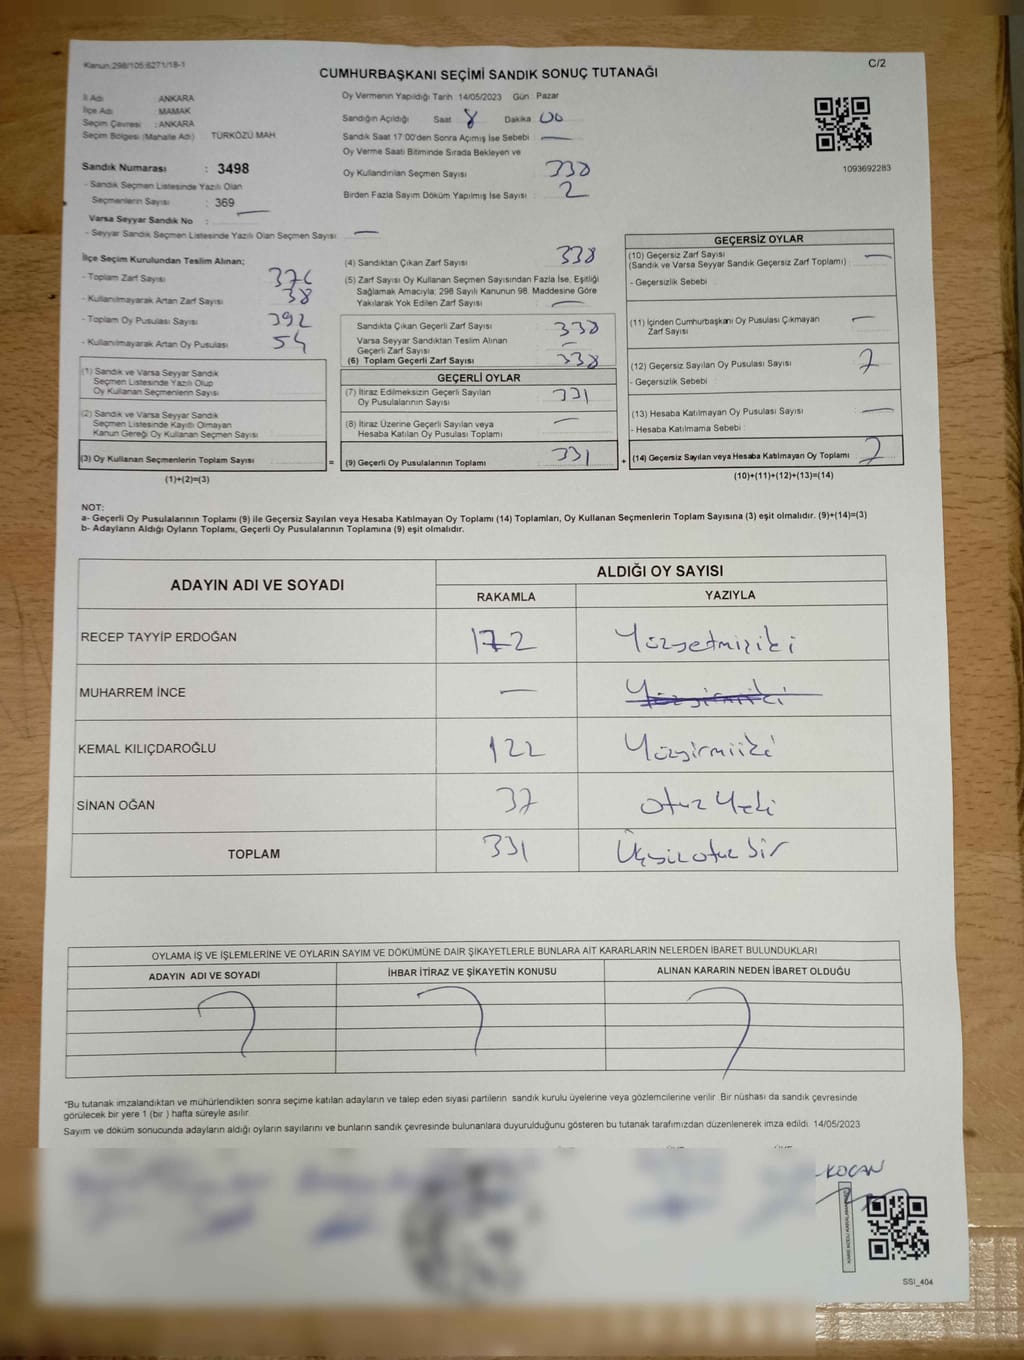 Kanun:298/105;6271/18-1
C/2
CUMHURBAŞKANI SEÇİMİ SANDIK SONUÇ TUTANAĞI
İl Adı ANKARA
İlçe Adı MAMAK
Seçim Çevresi :ANKARA
Seçim Bölgesi (Mahalle Adı) TÜRKÖZÜ MAH.
Sandık Numarası : 3498
- Sandık Seçmen Listesinde Yazılı Olan
Seçmenlerin Sayısı : 369
Varsa Seyyar Sandık No : —
- Seyyar Sandık Seçmen Listesinde Yazılı Olan Seçmen Sayısı —
Oy Vermenin Yapıldığı Tarih 14/05/2023 Gün Pazar
Sandığın Açıldığı Saat 8 Dakika 00
Sandık Saat 17:00'den Sonra Açımış İse Sebebi —
Oy Verme Saati Bitiminde Sırada Bekleyen ve
Oy Kullandırılan Seçmen Sayısı 338
Birden Fazla Sayım Döküm Yapılmış İse Sayısı 2
1093692283
İlçe Seçim Kurulundan Teslim Alınan;
- Toplam Zarf Sayısı 376
- Kullanılmayarak Artan Zarf Sayısı 38
- Toplam Oy Pusulası Sayısı 392
- Kullanılmayarak Artan Oy Pusulası 54
(1) Sandık ve Varsa Seyyar Sandık
Seçmen Listesinde Yazılı Olup
Oy Kullanan Seçmenlerin Sayısı
(2) Sandık ve Varsa Seyyar Sandık
Seçmen Listesinde Kayıtlı Olmayan
Kanun Gereği Oy Kullanan Seçmen Sayısı
(3) Oy Kullanan Seçmenlerin Toplam Sayısı
(1)+(2)=(3)
(4) Sandıktan Çıkan Zarf Sayısı 338
(5) Zarf Sayısı Oy Kullanan Seçmen Sayısından Fazla İse, Eşitliği
Sağlamak Amacıyla; 298 Sayılı Kanunun 98. Maddesine Göre
Yakılarak Yok Edilen Zarf Sayısı —
Sandıkta Çıkan Geçerli Zarf Sayısı 338
Varsa Seyyar Sandıktan Teslim Alınan
Geçerli Zarf Sayısı —
(6) Toplam Geçerli Zarf Sayısı 338
GEÇERLİ OYLAR
(7) İtiraz Edilmeksizin Geçerli Sayılan
Oy Pusulalarının Sayısı 331
(8) İtiraz Üzerine Geçerli Sayılan veya
Hesaba Katılan Oy Pusulası Toplamı —
= (9) Geçerli Oy Pusulalarının Toplamı 331
GEÇERSİZ OYLAR
(10) Geçersiz Zarf Sayısı —
(Sandık ve Varsa Seyyar Sandık Geçersiz Zarf Toplamı)
- Geçersizlik Sebebi
(11) İçinden Cumhurbaşkanı Oy Pusulası Çıkmayan —
Zarf Sayısı
(12) Geçersiz Sayılan Oy Pusulası Sayısı 7
- Geçersizlik Sebebi
(13) Hesaba Katılmayan Oy Pusulası Sayısı —
- Hesaba Katılmama Sebebi
+ (14) Geçersiz Sayılan veya Hesaba Katılmayan Oy Toplamı 7
(10)+(11)+(12)+(13)=(14)
NOT:
a- Geçerli Oy Pusulalarının Toplamı (9) ile Geçersiz Sayılan veya Hesaba Katılmayan Oy Toplamı (14) Toplamları, Oy Kullanan Seçmenlerin Toplam Sayısına (3) eşit olmalıdır. (9)+(14)=(3)
b- Adayların Aldığı Oyların Toplamı, Geçerli Oy Pusulalarının Toplamına (9) eşit olmalıdır.
ADAYIN ADI VE SOYADI
ALDIĞI OY SAYISI
RAKAMLA YAZIYLA
RECEP TAYYİP ERDOĞAN 172 Yüzyetmişiki
MUHARREM İNCE — Yüzyirmiiki
KEMAL KILIÇDAROĞLU 122 Yüzyirmiiki
SİNAN OĞAN 37 otuz Yedi
TOPLAM 331 Üçyüz otuz bir
OYLAMA İŞ VE İŞLEMLERİNE VE OYLARIN SAYIM VE DÖKÜMÜNE DAİR ŞİKAYETLERLE BUNLARA AİT KARARLARIN NELERDEN İBARET BULUNDUKLARI
ADAYIN ADI VE SOYADI İHBAR İTİRAZ VE ŞİKAYETİN KONUSU ALINAN KARARIN NEDEN İBARET OLDUĞU
*Bu tutanak imzalandıktan ve mühürlendikten sonra seçime katılan adayların ve talep eden siyasi partilerin sandık kurulu üyelerine veya gözlemcilerine verilir. Bir nüshası da sandık çevresinde
görülecek bir yere 1 (bir ) hafta süreyle asılır.
Sayım ve döküm sonucunda adayların aldığı oyların sayılarını ve bunların sandık çevresinde bulunanlara duyurulduğunu gösteren bu tutanak tarafımızdan düzenlenerek imza edildi. 14/05/2023
KOCAN
SSİ_404